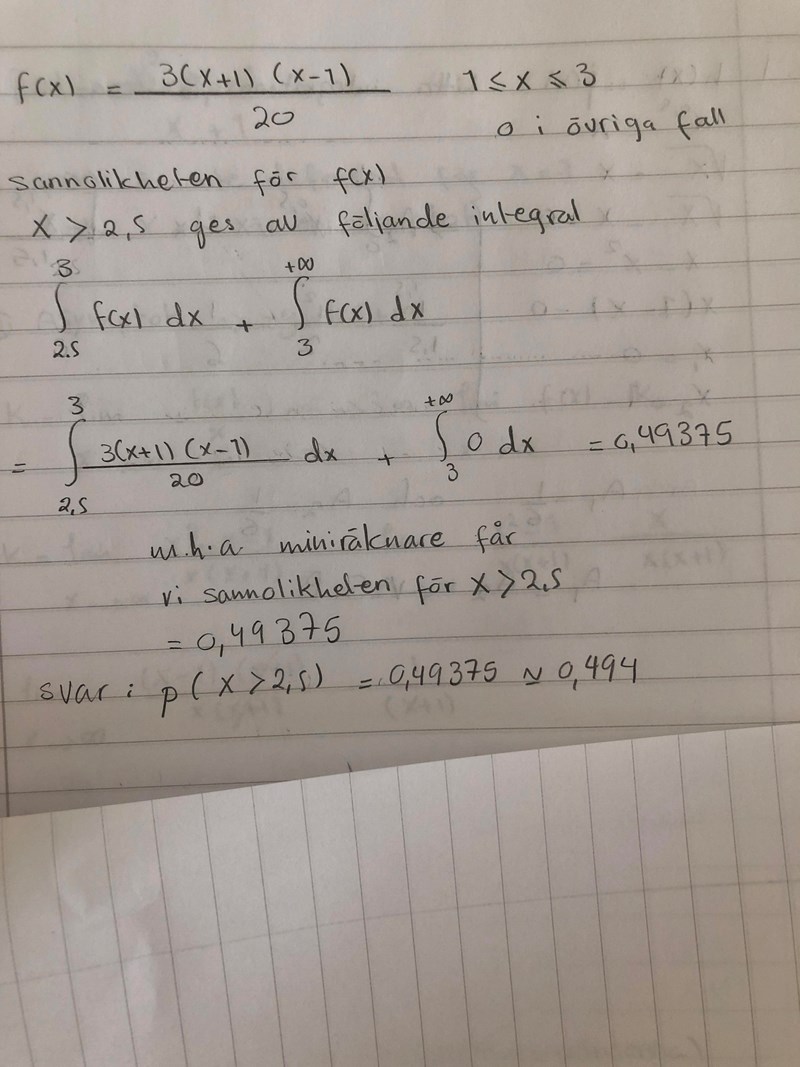 f(x) = 3(x+1) (x-1) / 20 1 ≤ x ≤ 3
0 i övriga fall
sannolikheten för f(x)
x > 2,5 ges av följande integral
∫_{2.5}^{3} f(x) dx + ∫_{3}^{+∞} f(x) dx
= ∫_{2,5}^{3} 3(x+1) (x-1) / 20 dx + ∫_{3}^{+∞} 0 dx = 0,49375
m.h.a. miniräknare får
vi sannolikheten för x > 2,5
= 0,49375
svar : p( x > 2,5) = 0,49375 ≃ 0,494